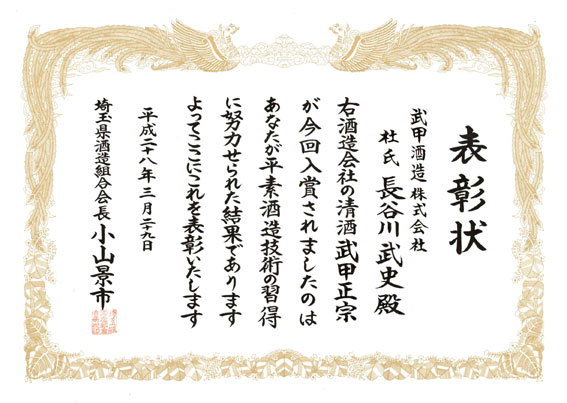 表彰状
武甲酒造株式会社
杜氏 長谷川武史殿
右酒造会社の清酒武甲正宗
が今回入賞されましたのは
あなたが平素酒造技術の習得
に努力せられた結果であります
よってここにこれを表彰いたします
平成二十八年三月二十九日
埼玉県酒造組合会長 小山景市